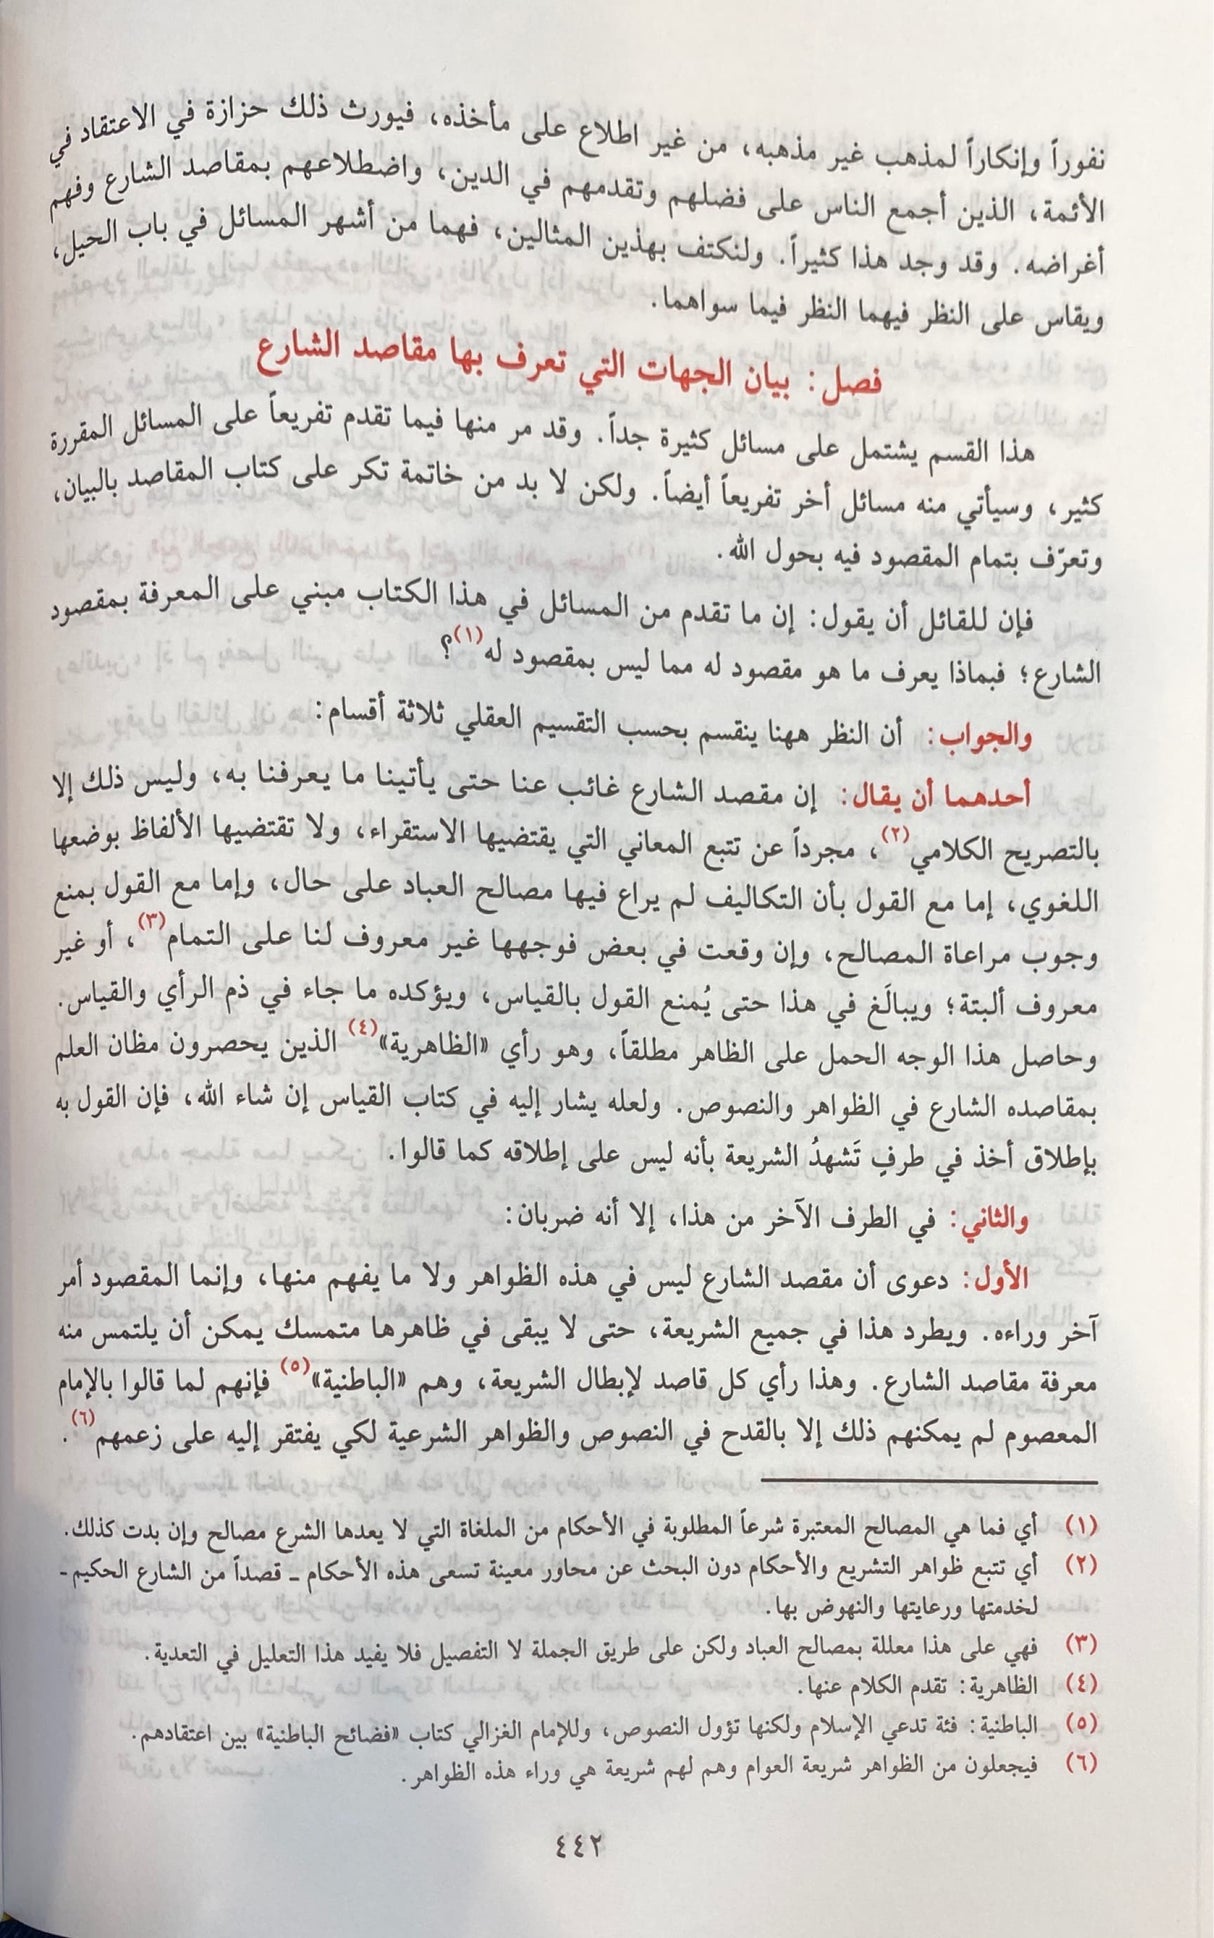 نفوراً وإنكاراً لمذهب غير مذهبه، من غير اطلاع على مأخذه، فيورث ذلك حزازة في الاعتقاد في
الأئمة، الذين أجمع الناس على فضلهم وتقدمهم في الدين، واضطلاعهم بمقاصد الشارع وفهم
أغراضه. وقد وجد هذا كثيراً. ولنكتف بهذين المثالين، فهما من أشهر المسائل في باب الحيل،
ويقاس على النظر فيهما النظر فيما سواهما.
فصل: بيان الجهات التي تعرف بها مقاصد الشارع
هذا القسم يشتمل على مسائل كثيرة جداً. وقد مر منها فيما تقدم تفريعاً على المسائل المقررة
كثير، وسيأتي منه مسائل أخر تفريعاً أيضاً. ولكن لا بد من خاتمة تكر على كتاب المقاصد بالبيان،
وتعرّف بتمام المقصود فيه بحول الله.
فإن للقائل أن يقول: إن ما تقدم من المسائل في هذا الكتاب مبني على المعرفة بمقصود
الشارع؛ فبماذا يعرف ما هو مقصود له مما ليس بمقصود له(١)؟
والجواب: أن النظر ههنا ينقسم بحسب التقسيم العقلي ثلاثة أقسام:
أحدهما أن يقال: إن مقصد الشارع غائب عنا حتى يأتينا ما يعرفنا به، وليس ذلك إلا
بالتصريح الكلامي(٢)، مجرداً عن تتبع المعاني التي يقتضيها الاستقراء، ولا تقتضيها الألفاظ بوضعها
اللغوي، إما مع القول بأن التكاليف لم يراع فيها مصالح العباد على حال، وإما مع القول بمنع
وجوب مراعاة المصالح، وإن وقعت في بعض فوجهها غير معروف لنا على التمام(٣)، أو غير
معروف ألبتة؛ ويبالَغ في هذا حتى يُمنع القول بالقياس، ويؤكده ما جاء في ذم الرأي والقياس.
وحاصل هذا الوجه الحمل على الظاهر مطلقاً، وهو رأي «الظاهرية»(٤) الذين يحصرون مظان العلم
بمقاصده الشارع في الظواهر والنصوص. ولعله يشار إليه في كتاب القياس إن شاء الله، فإن القول به
بإطلاق أخذ في طرفٍ تَشهدُ الشريعة بأنه ليس على إطلاقه كما قالوا.
والثاني: في الطرف الآخر من هذا، إلا أنه ضربان:
الأول: دعوى أن مقصد الشارع ليس في هذه الظواهر ولا ما يفهم منها، وإنما المقصود أمر
آخر وراءه. ويطرد هذا في جميع الشريعة، حتى لا يبقى في ظاهرها متمسك يمكن أن يلتمس منه
معرفة مقاصد الشارع. وهذا رأي كل قاصد لإبطال الشريعة، وهم «الباطنية»(٥) فإنهم لما قالوا بالإمام
المعصوم لم يمكنهم ذلك إلا بالقدح في النصوص والظواهر الشرعية لكي يفتقر إليه على زعمهم(٦).
(١) أي فما هي المصالح المعتبرة شرعاً المطلوبة في الأحكام من الملغاة التي لا يعدها الشرع مصالح وإن بدت كذلك.
(٢) أي تتبع ظواهر التشريع والأحكام دون البحث عن محاور معينة تسعى هذه الأحكام ـ قصداً من الشارع الحكيم ـ
لخدمتها ورعايتها والنهوض بها.
(٣) فهي على هذا معللة بمصالح العباد ولكن على طريق الجملة لا التفصيل فلا يفيد هذا التعليل في التعدية.
(٤) الظاهرية: تقدم الكلام عنها.
(٥) الباطنية: فئة تدعي الإسلام ولكنها تؤول النصوص، وللإمام الغزالي كتاب «فضائح الباطنية» بين اعتقادهم.
(٦) فيجعلون من الظواهر شريعة العوام وهم لهم شريعة هي وراء هذه الظواهر.
٤٤٢